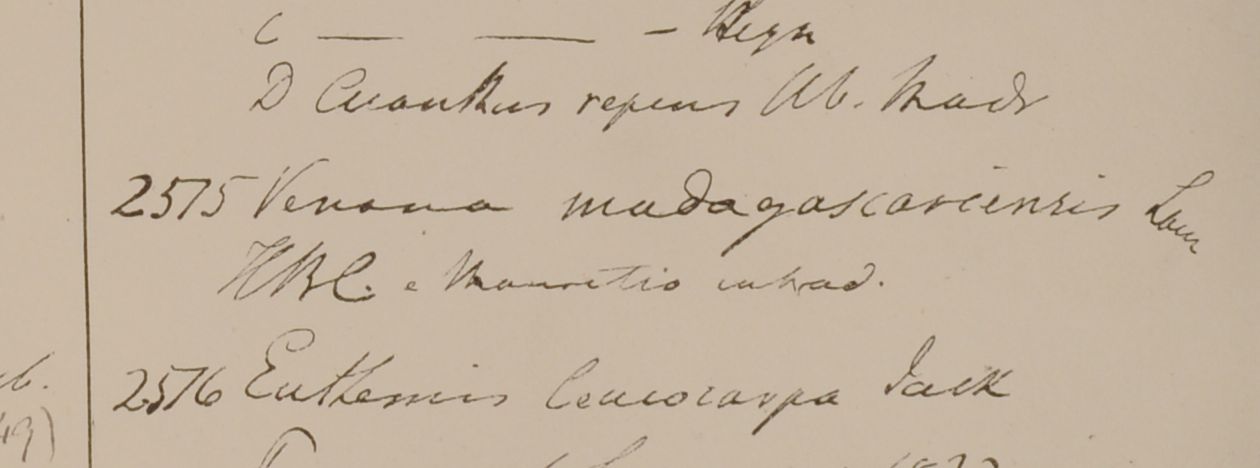 C — — — Heyn
D Acanthus repens Hb. Madr
2575 Verona madagascariensis Lam
HBC. e Mauritio introd.
2576 Euthemis leucocarpa Jack